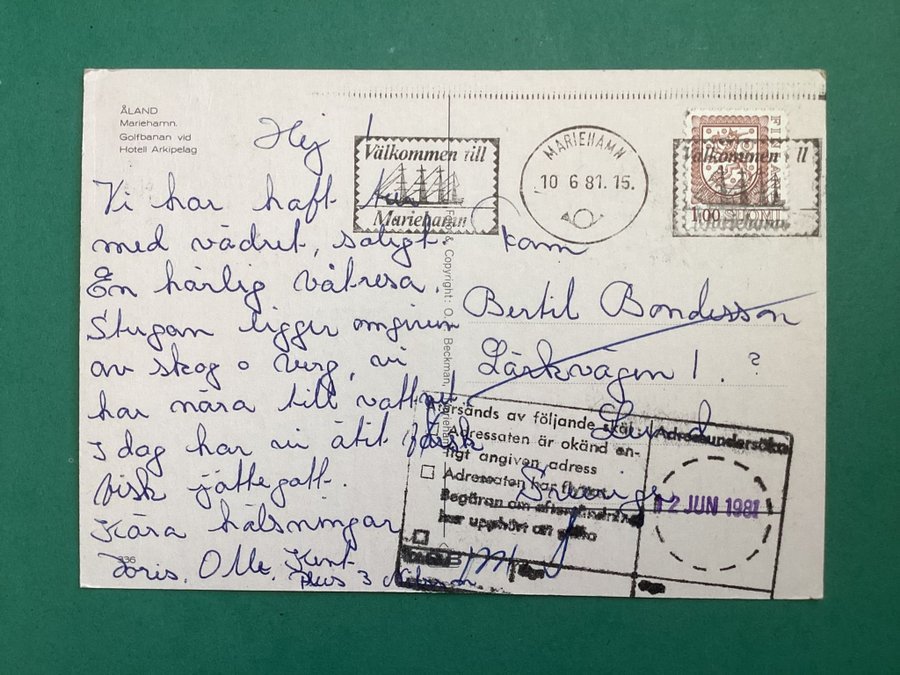 ÅLAND
Mariehamn.
Golfbanan vid
Hotell Arkipelag
Hej!
Vi har haft tur
med vädret, soligt.
En härlig båtresa.
Stugan ligger omgiven
av skog o berg, vi
har nära till vattnet
I dag har vi ätit färsk
fisk jättegott.
Kära hälsningar
Doris. Olle. Kent
Plus 3
336
Foto & Copyright: O. Beckman, Mariehamn
Välkommen till
Mariehamn
MARIEHAMN
10 6 81. 15.
FINLAND
1,00 SUOMI
Välkommen till
Mariehamn
Fam
Bertil Bondesson
Lärkvägen 1. ?
Lund
Sverige
Återsänds av följande skäl:
Adressaten är okänd en-
ligt angiven adress
Adressaten har flyttat.
Begäran om eftersändning
har upphört att gälla
Adressundersökn
12 JUN 1981
Sign
Sign